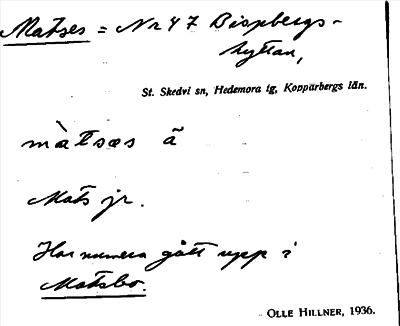 Matses = Nr 47 Bispbergs-
hyttan,
St. Skedvi sn, Hedemora tg, Kopparbergs län.
màtsəs ã
Mats jr.
Har numera gått upp i
Matsbo.
OLLE HILLNER, 1936.